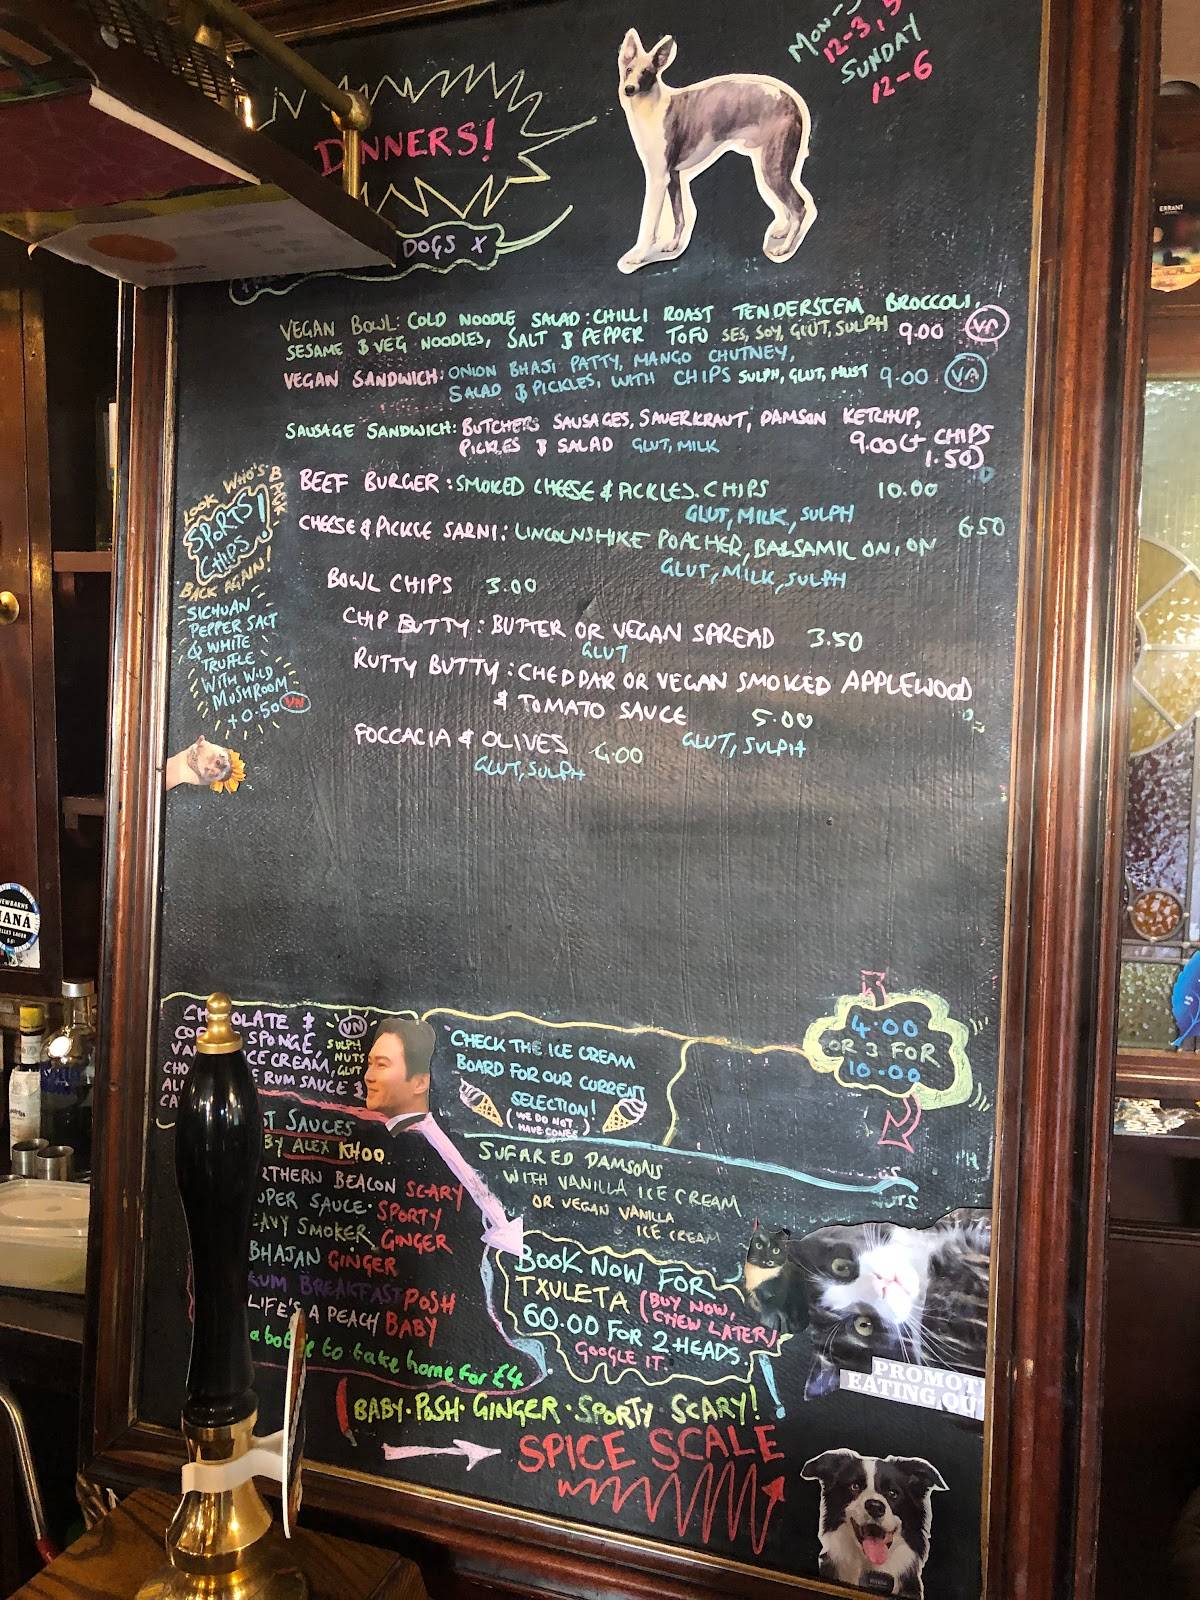 MON-S
12-3, 5
SUNDAY
12-6
DINNERS!
DOGS X
VEGAN BOWL: COLD NOODLE SALAD: CHILLI ROAST TENDERSTEM BROCCOLI,
SESAME & VEG NOODLES, SALT & PEPPER TOFU SES, SOY, GLUT, SULPH 9.00 VN
VEGAN SANDWICH: ONION BHAJI PATTY, MANGO CHUTNEY,
SALAD & PICKLES, WITH CHIPS SULPH, GLUT, MUST 9.00 VN
SAUSAGE SANDWICH: BUTCHERS SAUSAGES, SAUERKRAUT, DAMSON KETCHUP,
PICKLES & SALAD GLUT, MILK 9.00 (+ CHIPS
1.50)
BEEF BURGER: SMOKED CHEESE & PICKLES. CHIPS 10.00
GLUT, MILK, SULPH
CHEESE & PICKLE SARNI: LINCOLNSHIRE POACHER, BALSAMIC ON, ON 6.50
GLUT, MILK, SULPH
BOWL CHIPS 3.00
CHIP BUTTY: BUTTER OR VEGAN SPREAD 3.50
GLUT
RUTTY BUTTY: CHEDDAR OR VEGAN SMOKED APPLEWOOD
& TOMATO SAUCE 5.00
GLUT, SULPH
FOCCACIA & OLIVES 4.00
GLUT, SULPH
LOOK WHO'S BACK
SPORTS!
CHIPS
BACK AGAIN!
SICHUAN
PEPPER SALT
& WHITE
TRUFFLE
WITH WILD
MUSHROOM
+0.50 VN
CHOCOLATE &
SPONGE,
ICE CREAM,
RUM SAUCE &
VN
SULPH
NUTS
GLUT
CHECK THE ICE CREAM
BOARD FOR OUR CURRENT
SELECTION!
(WE DO NOT
HAVE CONES)
4.00
OR 3 FOR
10.00
SAUCES
BY ALEX KHOO
RTHERN BEACON SCARY
UPER SAUCE · SPORTY
EAVY SMOKER, GINGER
BHAJAN GINGER
RUM BREAKFAST POSH
LIFE'S A PEACH BABY
a bottle to take home for £4
SUFARED DAMSONS
WITH VANILLA ICE CREAM
OR VEGAN VANILLA
ICE CREAM
BOOK NOW FOR
TXULETA (BUY NOW,
CHEW LATER)
60.00 FOR 2 HEADS.
GOOGLE IT.
PROMOT
EATING OU
BABY · POSH · GINGER · SPORTY · SCARY!
SPICE SCALE
ERRANT